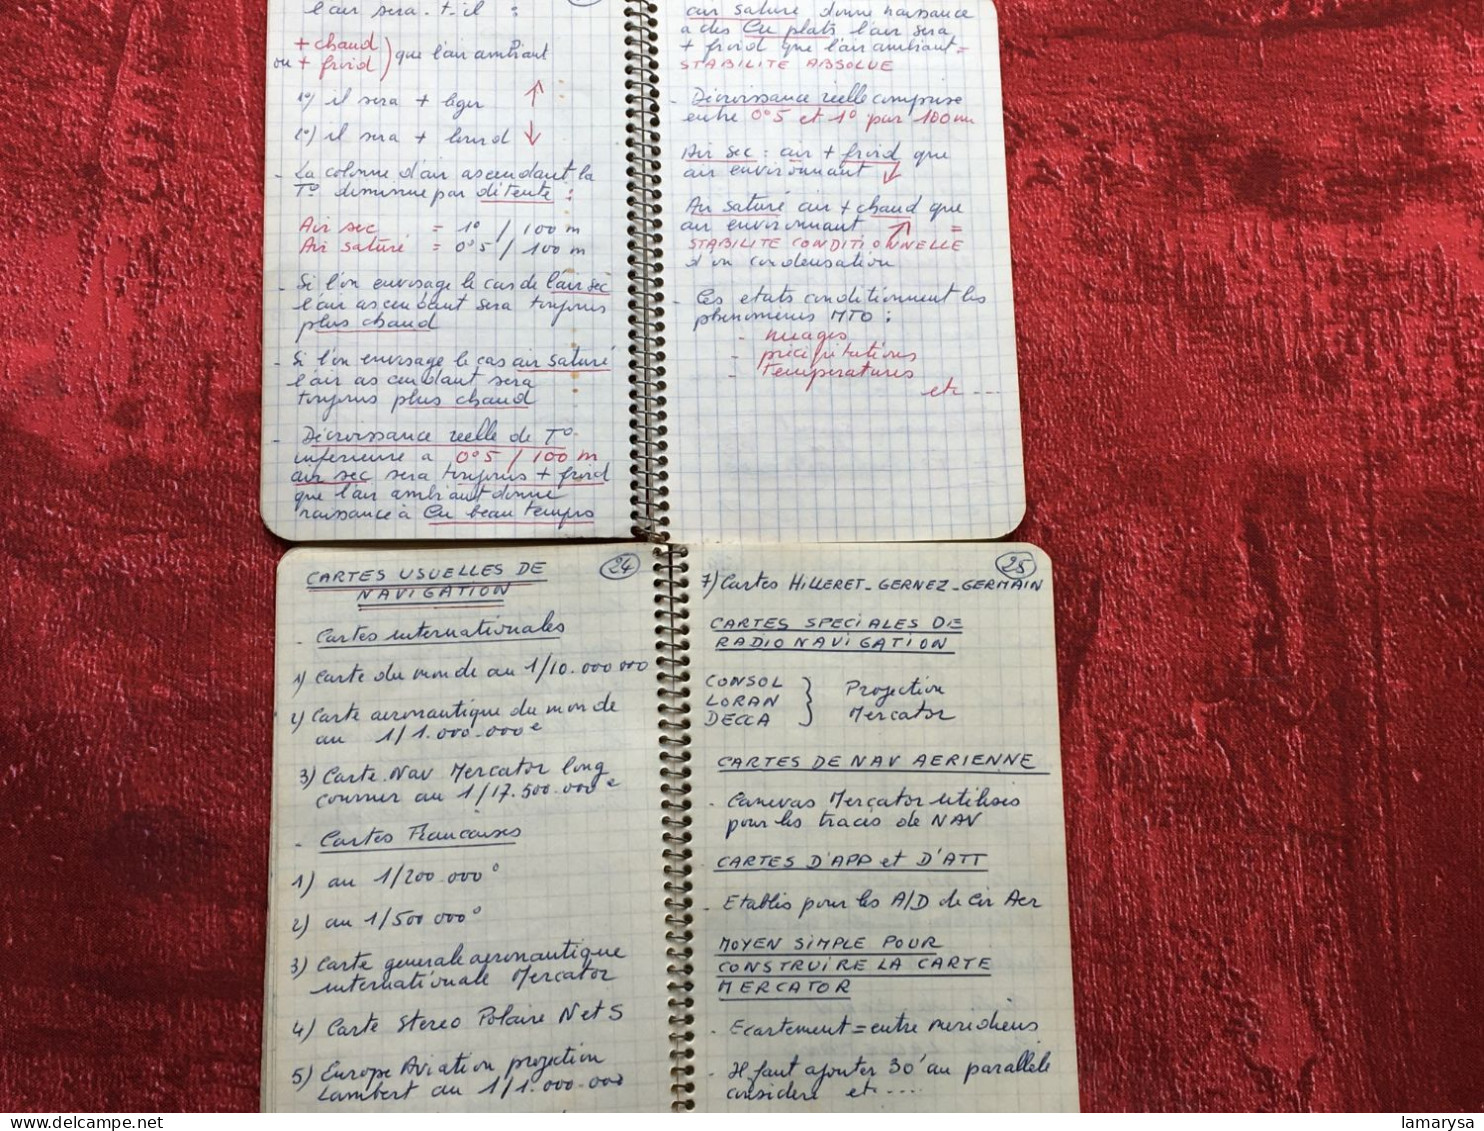 l'air sera-t-il :
+ chaud
ou + froid) que l'air ambiant
1°) il sera + leger ↑
2°) il sera + lourd ↓
- La colonne d'air ascendant la
T° diminue par detente :
Air sec = 1° / 100 m
Air saturé = 0°5 / 100 m
- Si l'on envisage le cas de l'air sec
l'air ascendant sera toujours
plus chaud
- Si l'on envisage le cas air saturé
l'air ascendant sera
toujours plus chaud
- Décroissance réelle de T°
inférieure a 0°5 / 100 m
air sec sera toujours + froid
que l'air ambiant donne
naissance à Cu beau temps
air saturé donne naissance
a des Cu plats l'air sera
+ froid que l'air ambiant =
STABILITE ABSOLUE
- Décroissance réelle comprise
entre 0°5 et 1° par 100 m
Air sec : air + froid que
air environnant ↓
Air saturé air + chaud que
air environnant ↑ =
STABILITE CONDITIONNELLE
d'un condensation
- Ces etats conditionnent les
phenomenes MTO :
- nuages
- précipitations
- temperatures
etc ....
24
CARTES USUELLES DE
NAVIGATION
- Cartes internationales
1) Carte du monde au 1/10.000 000
2) Carte aeronautique du monde
au 1/1.000.000e
3) Carte Nav Mercator long
courrier au 1/17.500.000e
- Cartes Francaises
1) au 1/200.000°
2) au 1/500 000°
3) Carte generale aeronautique
internationale Mercator
4) Carte Stereo Polaire N et S
5) Europe Aviation projection
Lambert au 1/1.000.000
25
7) Cartes HILLERET-GERNEZ-GERMAIN
CARTES SPECIALES DE
RADIO NAVIGATION
CONSOL
LORAN
DECCA
} Projection
Mercator
CARTES DE NAV AERIENNE
- Canevas Mercator utilisés
pour les tracés de NAV
CARTES D'APP et D'ATT
- Etablis pour les A/D de Cir Aer
MOYEN SIMPLE POUR
CONSTRUIRE LA CARTE
MERCATOR
- Ecartement = entre meridiens
- Il faut ajouter 30' au parallèle
consideré etc ....
lamarysa